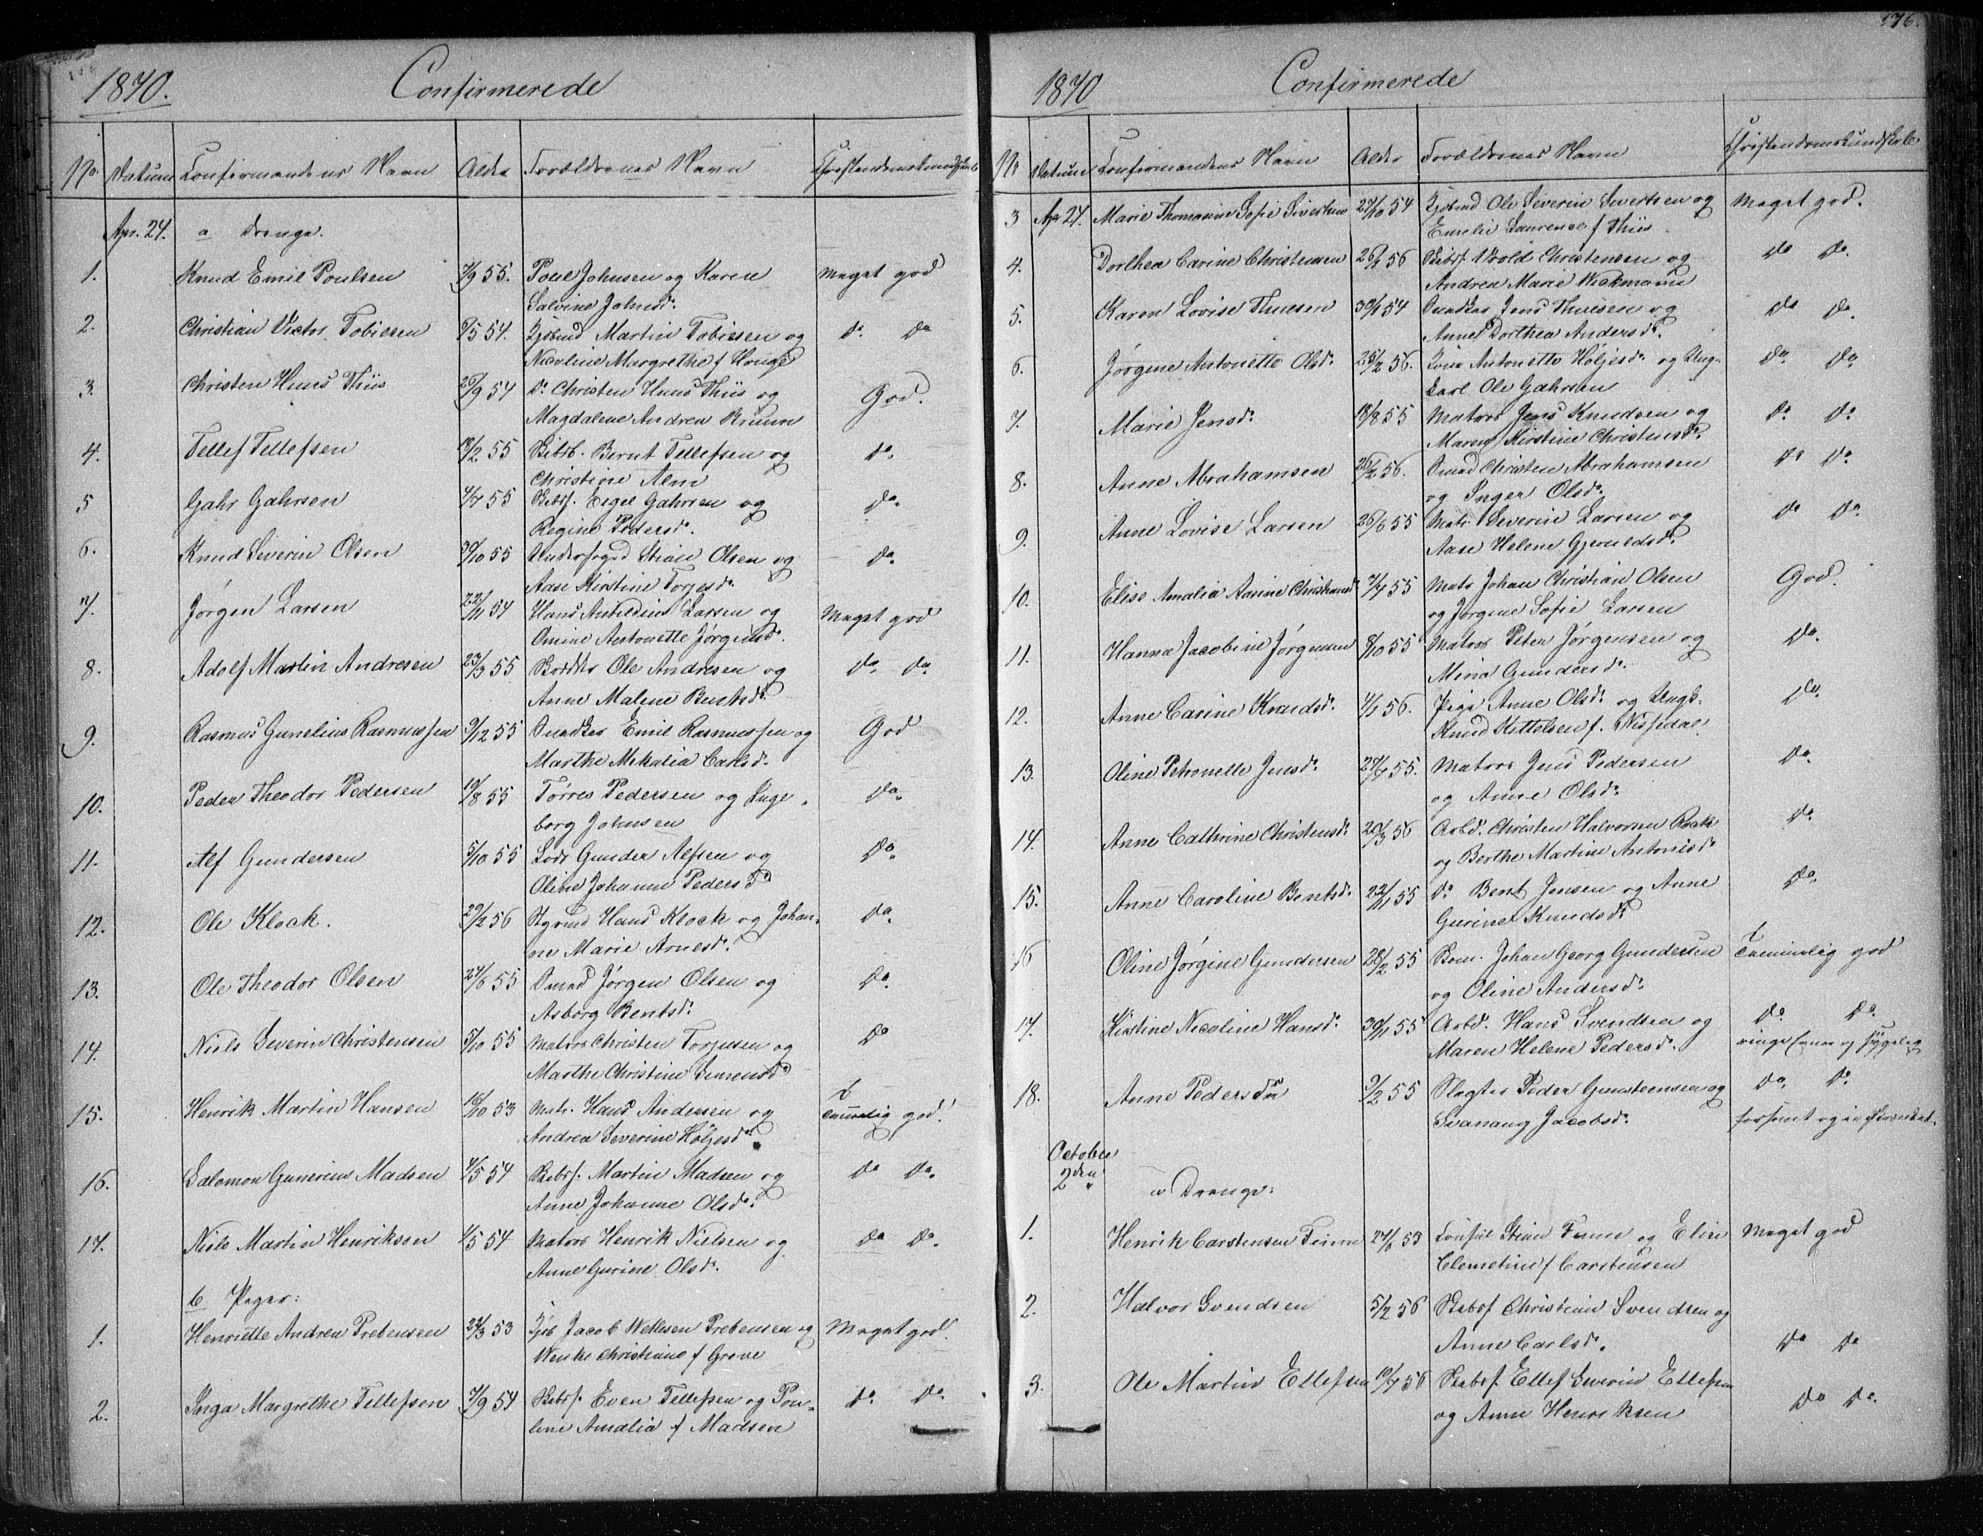 1870. Confirmerede
No. Datum Confirmandens Navn Alder Forældrenes Navn Christendomskundskab
Apr. 24. a Drenge.
1. Knud Emil Poulsen 7/9 55. Poul Johnsen og Karen Meget god
Salvine Johnsd.
2. Christian Victor Tobiesen 55 54. Kjøbmd Martin Tobiesen og do. do
Nicoline Margrethe f
3. Christen Hans Thiis 26/9 54 do Christen Hans Thiis og God.
Magdalene Andrea
4. Tellef Tellefsen 18/2 55 Skibsb. Bernt Tellefsen og do.
Christine Alm
5 Gahr Gahrsen 4/7 55 Skibsf. Eigel Gahrsen og do.
Regine Pedersd.
6. Knud Severin Olsen 30/10 55 Stian Olsen og do.
Aase Kirstine Torjesd.
7. Jørgen Larsen 22/11 54 Hans Larsen og Meget god
Antonette Jørgensd.
8. Adolf Martin Andresen 23/3 55 Ole Andresen og do. do.
Anne Malene Berntsd.
9. Rasmus Gunelius Rasmussen 9/12 55 Emil Rasmussen og God
Marthe Mikalia Carlsd.
10. Peder Theodor Pedersen 19/8 55 Tørres Pedersen og Inge do.
borg Johnsen
11. Alf Gundersen 5/10 55 Lods Gunder Alfsen og do.
Oline Johanne Pedersd
12. Ole Klock. 29/2 56 Hans Klock og Johan- do.
ne Marie Arnesd.
13. Ole Theodor Olsen 27/6 55 Jørgen Olsen og do.
Asborg Bentsd.
14. Niels Severin Christensen 5/10 55 Matros Christen Torjusen og do
Marthe Christine Simensd
15. Henrik Martin Hansen 16/10 53 Matr. Hans Andersen og Temmelig god!
Andrea Severine Höljesd.
16. Salomon Gunerius Madsen 4/5 54 Skibsf. Martin Madsen og do do.
Anne Johanne Olsd.
17. Niels Martin Henriksen 1/5 54 Matros Henrik Nielsen og do do.
Anne Gurine Olsd.
b Piger:
1. Henriette Andrea Prebensen 22/3 53 Kjøb Jacob Wettesen Prebensen og Meget god.
Wenke Christiane f Greve
2. Inga Margrethe Tellefsen 7/9 54 Skibsf. Even Tellefsen og Pou- do. do.
line Amalia f Madsen
176.
1870 Confirmerede
No Datum Confirmandens Navn Alder Forældrenes Navn Christendomskundskab
3 Apr 24. Marie Thomasine Sofie Sivertsen 27/10 54 Kjøbmd Ole Severin Sivertsen og Meget god.
Emelie Laurence f Thiis
4. Dorthea Carine Christensen 26/1 56 Skibsf. Christensen og do do.
Andrea Marie Wickmann
5. Karen Lovise Thuesen 30/1 54 Jens Thuesen og do do.
Anne Dorthea Andersd.
6. Jørgine Antonette Olsd. 25/2 56. Antonette Höljesd. og Ung- do. do.
karl Ole Gahrsen
7. Marie Jensd. 18/8 55 Matros Jens Knudsen og do. do.
Maren Kirstine Christensd.
8. Anne Abrahamsen 26/2 56. Christen Abrahamsen do do.
og Inger Olsd.
9. Anne Lovise Larsen 26/6 55 Matr. Severin Larsen og do do.
Aase Helene Gjeruldsd.
10. Elise Amalia Aasine Christiansd 7/7 55 Matr Johan Christian Olsen God.
og Jørgine Sofie Larsen
11. Hanna Jacobine Jørgensen 8/10 55 Matros Peter Jørgensen og do.
Mina Gundersd.
12. Anne Carine Knudsd. 1/1 56. Pige Anne Olsd. og Ungk. do.
Knud Kittelsen f. Nissedal
13. Oline Petronelle Jensd. 27/7 55. Matros Jens Pedersen do.
og Anne Olsd.
14. Anne Cathrine Christensd. 20/3 56 Arbd. Christen Halvorsen do.
og Berthe Martine Antonisd.
15. Anne Caroline Bentsd. 22/11 55 do Bent Jensen og Anne do.
Gurine Knudsd.
16 Oline Jørgine Gundersen 28/2 55 Johan Georg Gundersen Temmelig god
og Oline Andersd.
17. Kirstine Nicoline Hansd. 30/11 55 Arbd. Hans Svendsen og do. do.
Maren Helene Pedersd. ringe Evner og sygelig
18. Anne Pedersd. 9/2 55 Slagter Peder Gunstensen og do. do.
Svanaug Jacobsd. forsømt og
October
2den
a Drenge:
1. Henrik Carstensen Finne 24/6 53 Stian Finne og Elise Meget god
Clemetine f Carstensen
2. Halvor Svendsen 5/2 56 Skibsf Christian Svendsen og
Anne Carlsd. do do
3. Ole Martin Ellefsen 19/7 56 Skibsf Ellef Severin Ellefsen
og Anne Henriksen do do.